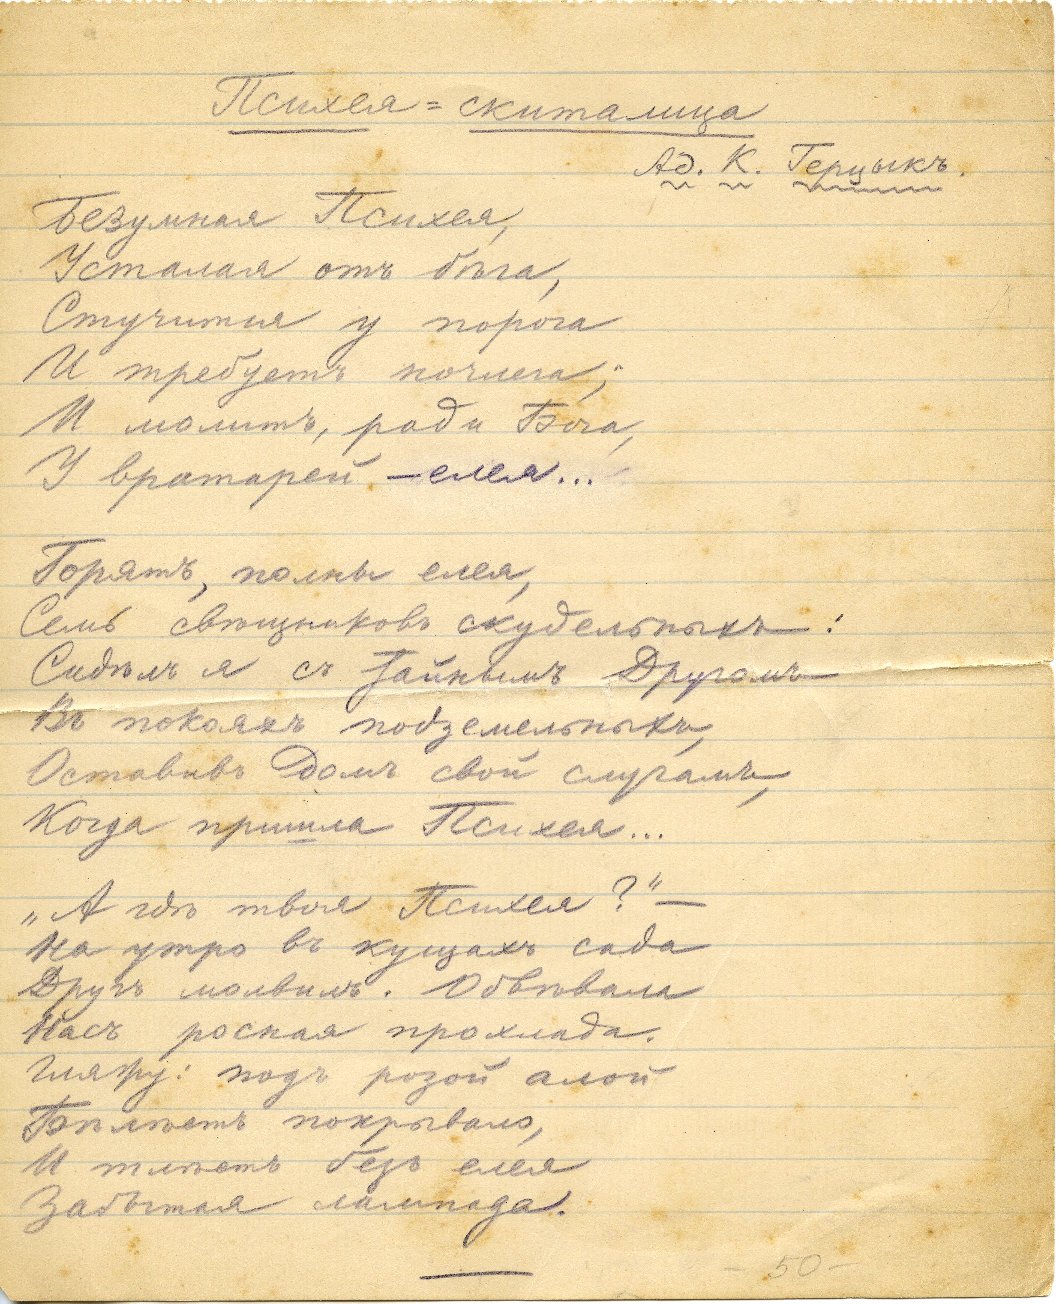 Психея = скиталица
Ад. К. Герцыкъ.
Безумная Психея,
Усталая отъ бѣга,
Стучится у порога
И требуетъ ночлега;
И молитъ, ради Бога,
У вратарей – елея...
Горятъ, полны елея,
Семь свѣщниковъ скудельныхъ:
Сидѣлъ я съ Тайнымъ Другомъ
Въ покояхъ подземельныхъ,
Оставивъ Домъ свой слугамъ,
Когда пришла Психея...
„А гдѣ твоя Психея?“ –
На утро въ кущахъ сада
Другъ молвилъ. Обвѣвала
Насъ росная прохлада.
Гляжу: подъ розой алой
Бѣлѣетъ покрывало,
И тлѣетъ безъ елея
Забытая лампада.
– 50 –